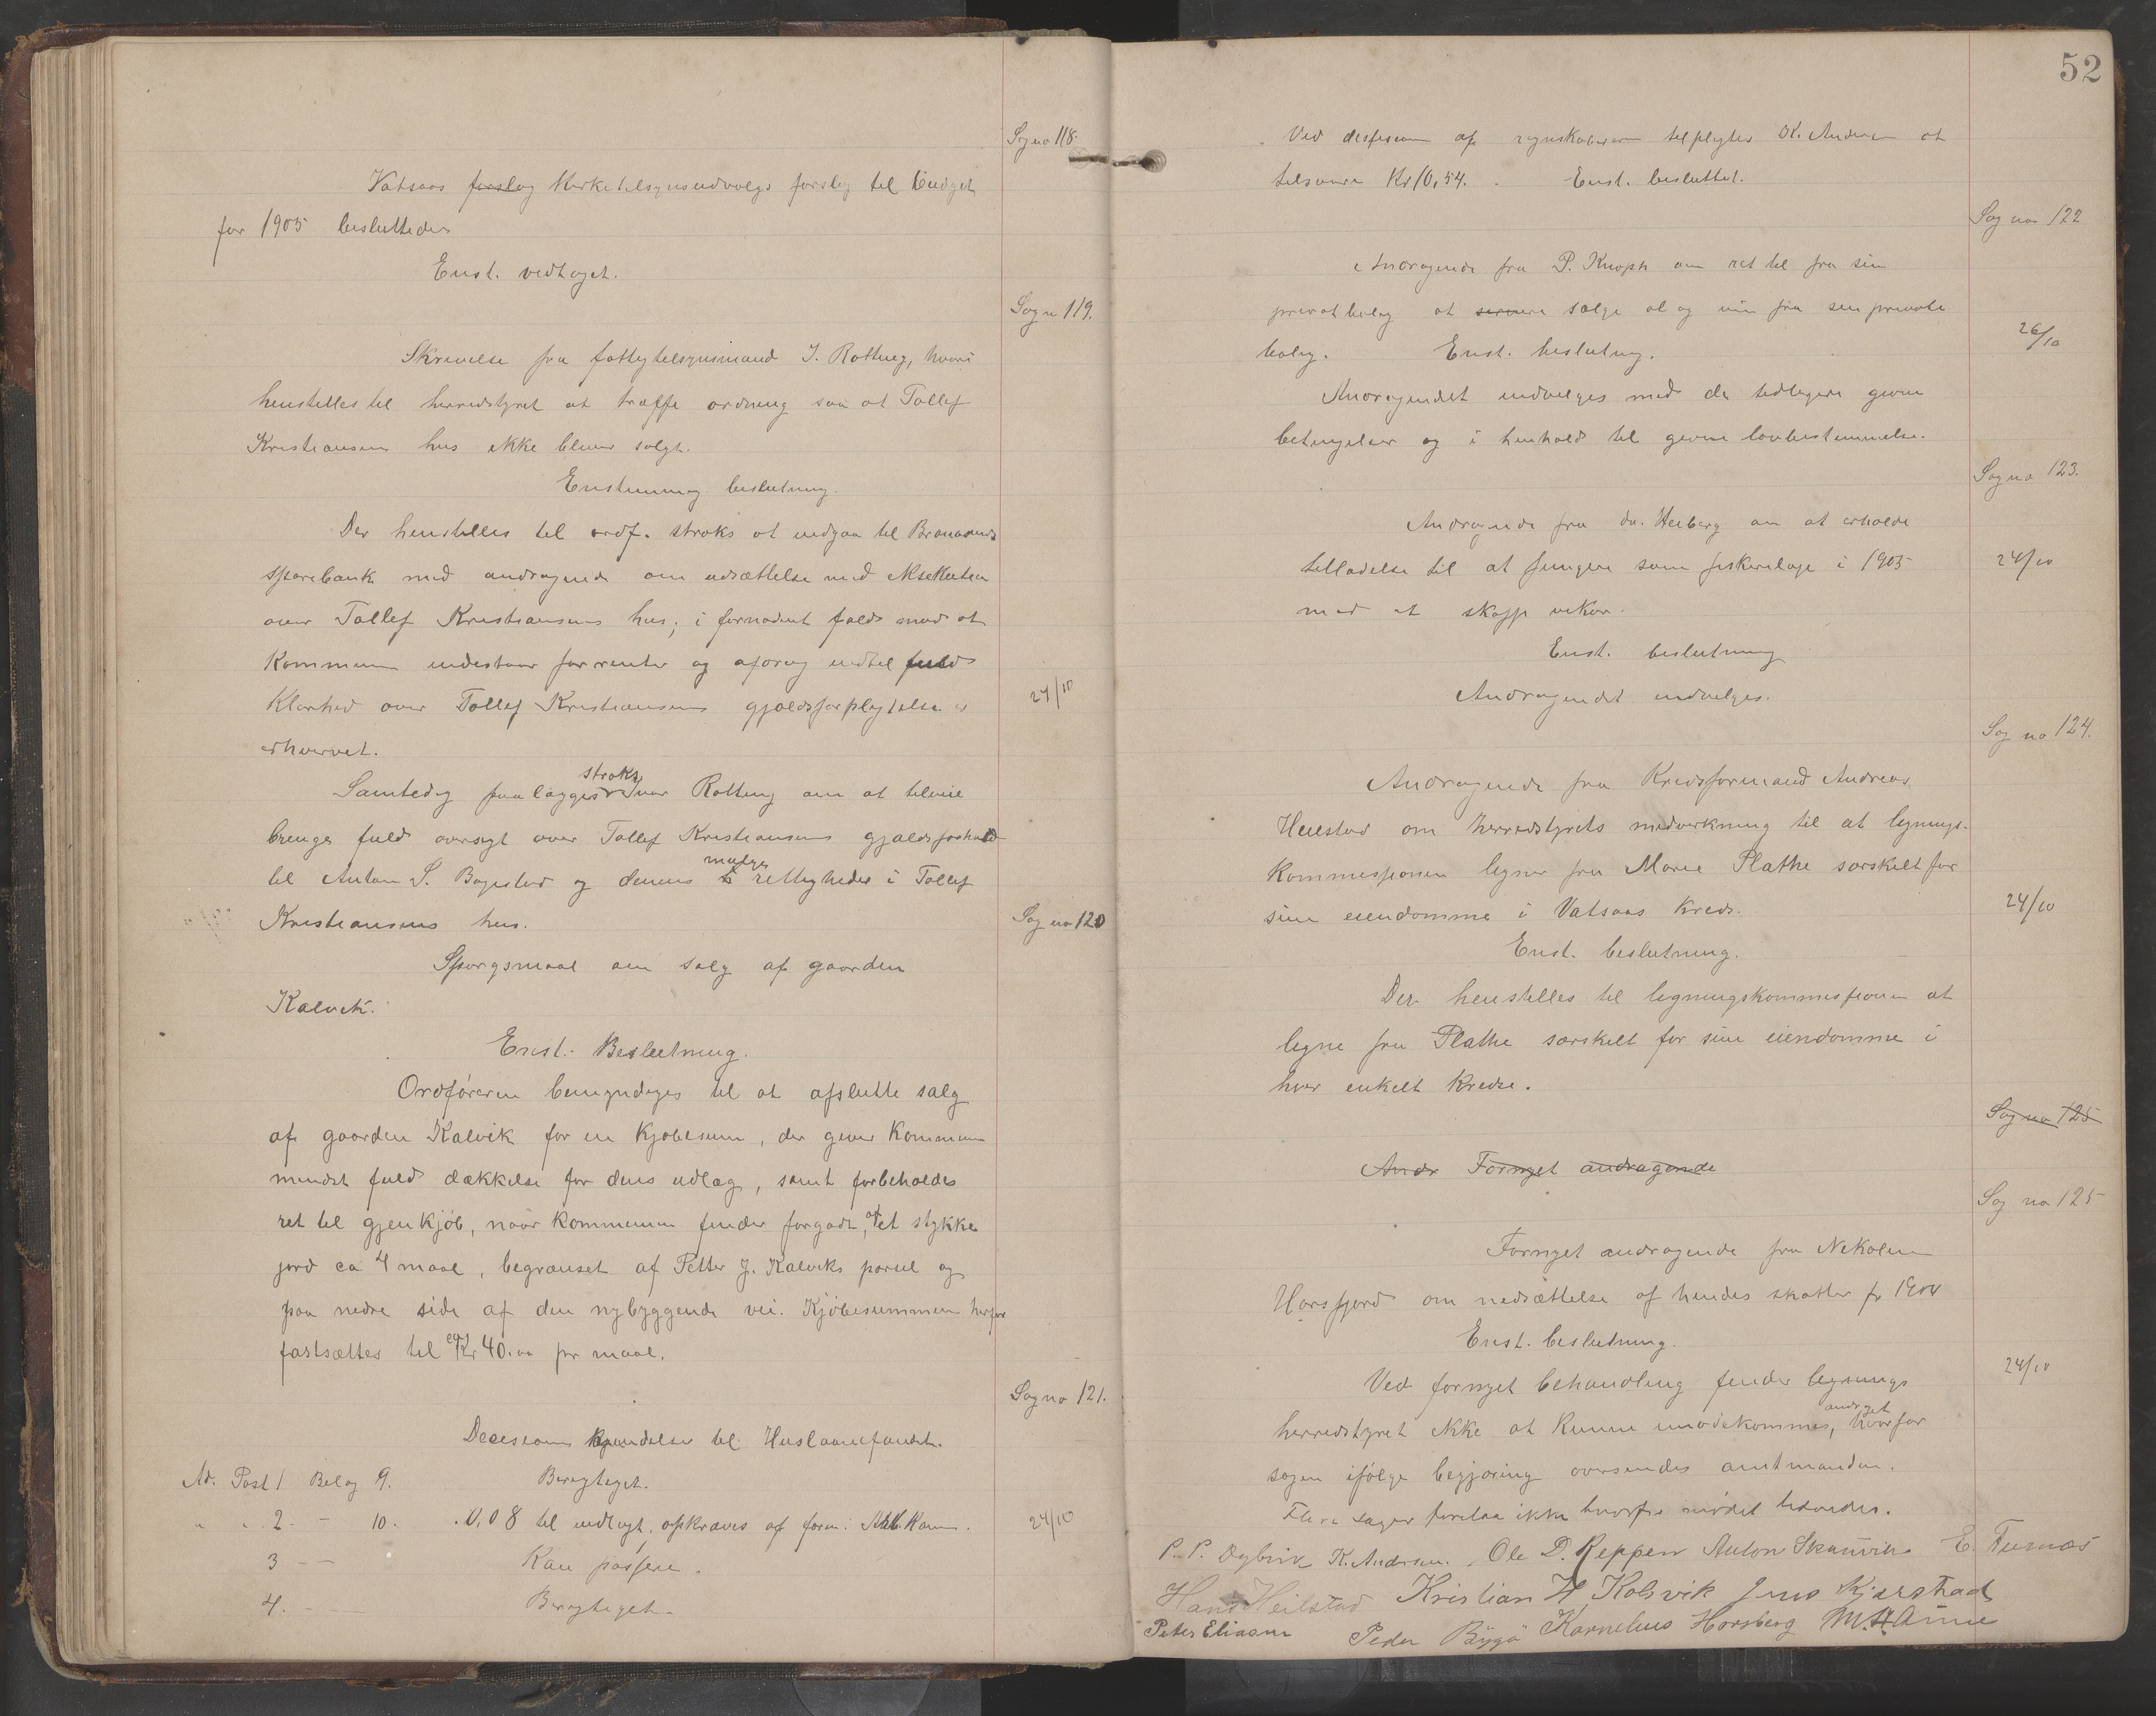 Sag no 118.
Vatsaas forslag Kirketilsynsudvalgs forslag til budget
for 1905 besluttedes
Enst. vedtaget.
Sag n 119.
Skrivelse fra fattigtilsynsmand I. Rotting, hvori
henstilles til herredstyret at træffe ordning saa at Tollef
Kristiansens hus ikke bliver solgt.
Enstemmig beslutning.
Der henstilles til ordf. straks at indgaa til Brønøsunds
sparebank med andragende om udsættelse med eksekution
over Tollef Kristiansens hus; i fornødent fald mod at
Kommunen indestaar for renter og afdrag indtil fuld
Klarhed over Tollef Kristiansens gjældsforpligtelse er
erhvervet.
24/10
Samtidig paalægges straks Ivar Rotting om at tilveie
bringe fuld oversigt over Tollef Kristiansens gjældsforhold
til Anton S. Bogestad og dennes mulige rettigheder i Tollef
Kristiansens hus.
Sag no 120
Spørgsmaal om salg af gaarden
Kalvik.
Enst. Beslutning.
Ordføreren bemyndiges til at afslutte salg
af gaarden Kalvik for en kjøbesum, der giver Kommunen
mindst fuld dækkelse for dens udlæg, samt forbeholdes
ret til gjenkjøb, naar kommunen finder forgodt, af et stykke
jord ca 4 maal, begrænset af Petter J. Kalviks parsel og
paa nedre side af den nybyggende vei. Kjøbesummen herfor
fastsættes til Kr 40.00 pr maal.
Sag no 121.
Decisions kjendelse til Huslaanefondet.
Ad. Post 1 Bilag 9. Berigtiget.
" " 2. - 10. 0,08 til indtægt, opkræves af form. Arb. Kom.
24/10
3 - - Kan passere.
4. - - Berigtiget.
52
Ved decision af regnskaberne tilpligtes K. Andersen at
tilsvare Kr 10,54. Enst. besluttet.
Sag no 122
Andragende fra P. Knoph om ret til fra sin
privatbolig at servere sælge øl og vin fra sin private
bolig. Enst. beslutning.
26/10
Andragendet indvilges med de tidligere givne
betingelser og i henhold til givne lovbestemmelse.
Sag no 123.
Andragende fra dr. Heiberg om at erholde
tilladelse til at fungere som fiskerilæge i 1905
24/10
mod at skaffe vikar.
Enst. beslutning
Andragendet indvilges.
Sag no 124.
Andragende fra Kredsformand Andreas
Heilstad om herredstyrets medvirkning til at lignings-
Kommissionen ligner fru Marie Plathe særskilt for
sine eiendomme i Vatsaas Kreds.
24/10
Enst. beslutning.
Der henstilles til ligningskommissionen at
ligne fru Plathe særskilt for sine eiendomme i
hver enkelt Kreds.
Sag no 125
Andr Fornyet andragende
Sag no 125
Fornyet andragende fra Nikoline
Horsfjord om nedsættelse af hendes skatter pr 1904
Enst. beslutning.
24/10
Ved fornyet behandling finder lignings
herredstyret ikke at kunne imødekomme andr.get, hvorfor
sagen ifølge begjæring oversendes amtmanden.
Flere sager forelaa ikke hvorfor mødet hævedes.
P. P. Dybvik K. Andersen. Ole D. Reppen Anton Skauvik E. Turnas
Hans Heilstad Kristian H. Kolsvik Jens Kjelstad
Peter Eliasen Peder Bøgø Kornelius Horsberg M. H. Aune